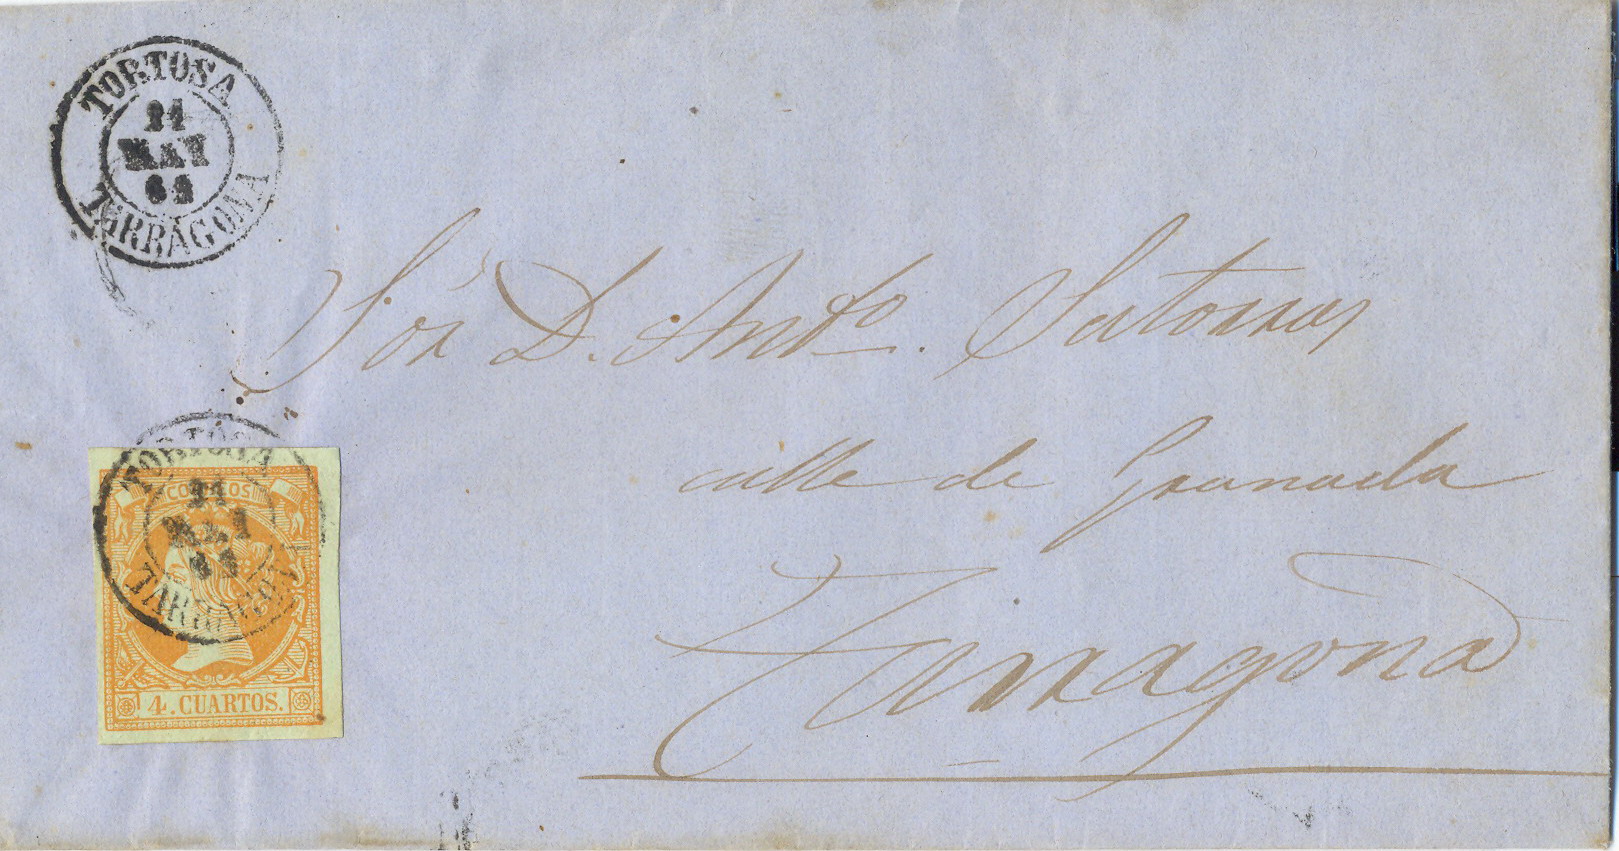 TORTOSA
MAY
TARRAGONA
Sór D. Antº. Satorras
calle de Granada
Tarragona
TORTOSA
TARRAGONA
CORREOS
4. CUARTOS.